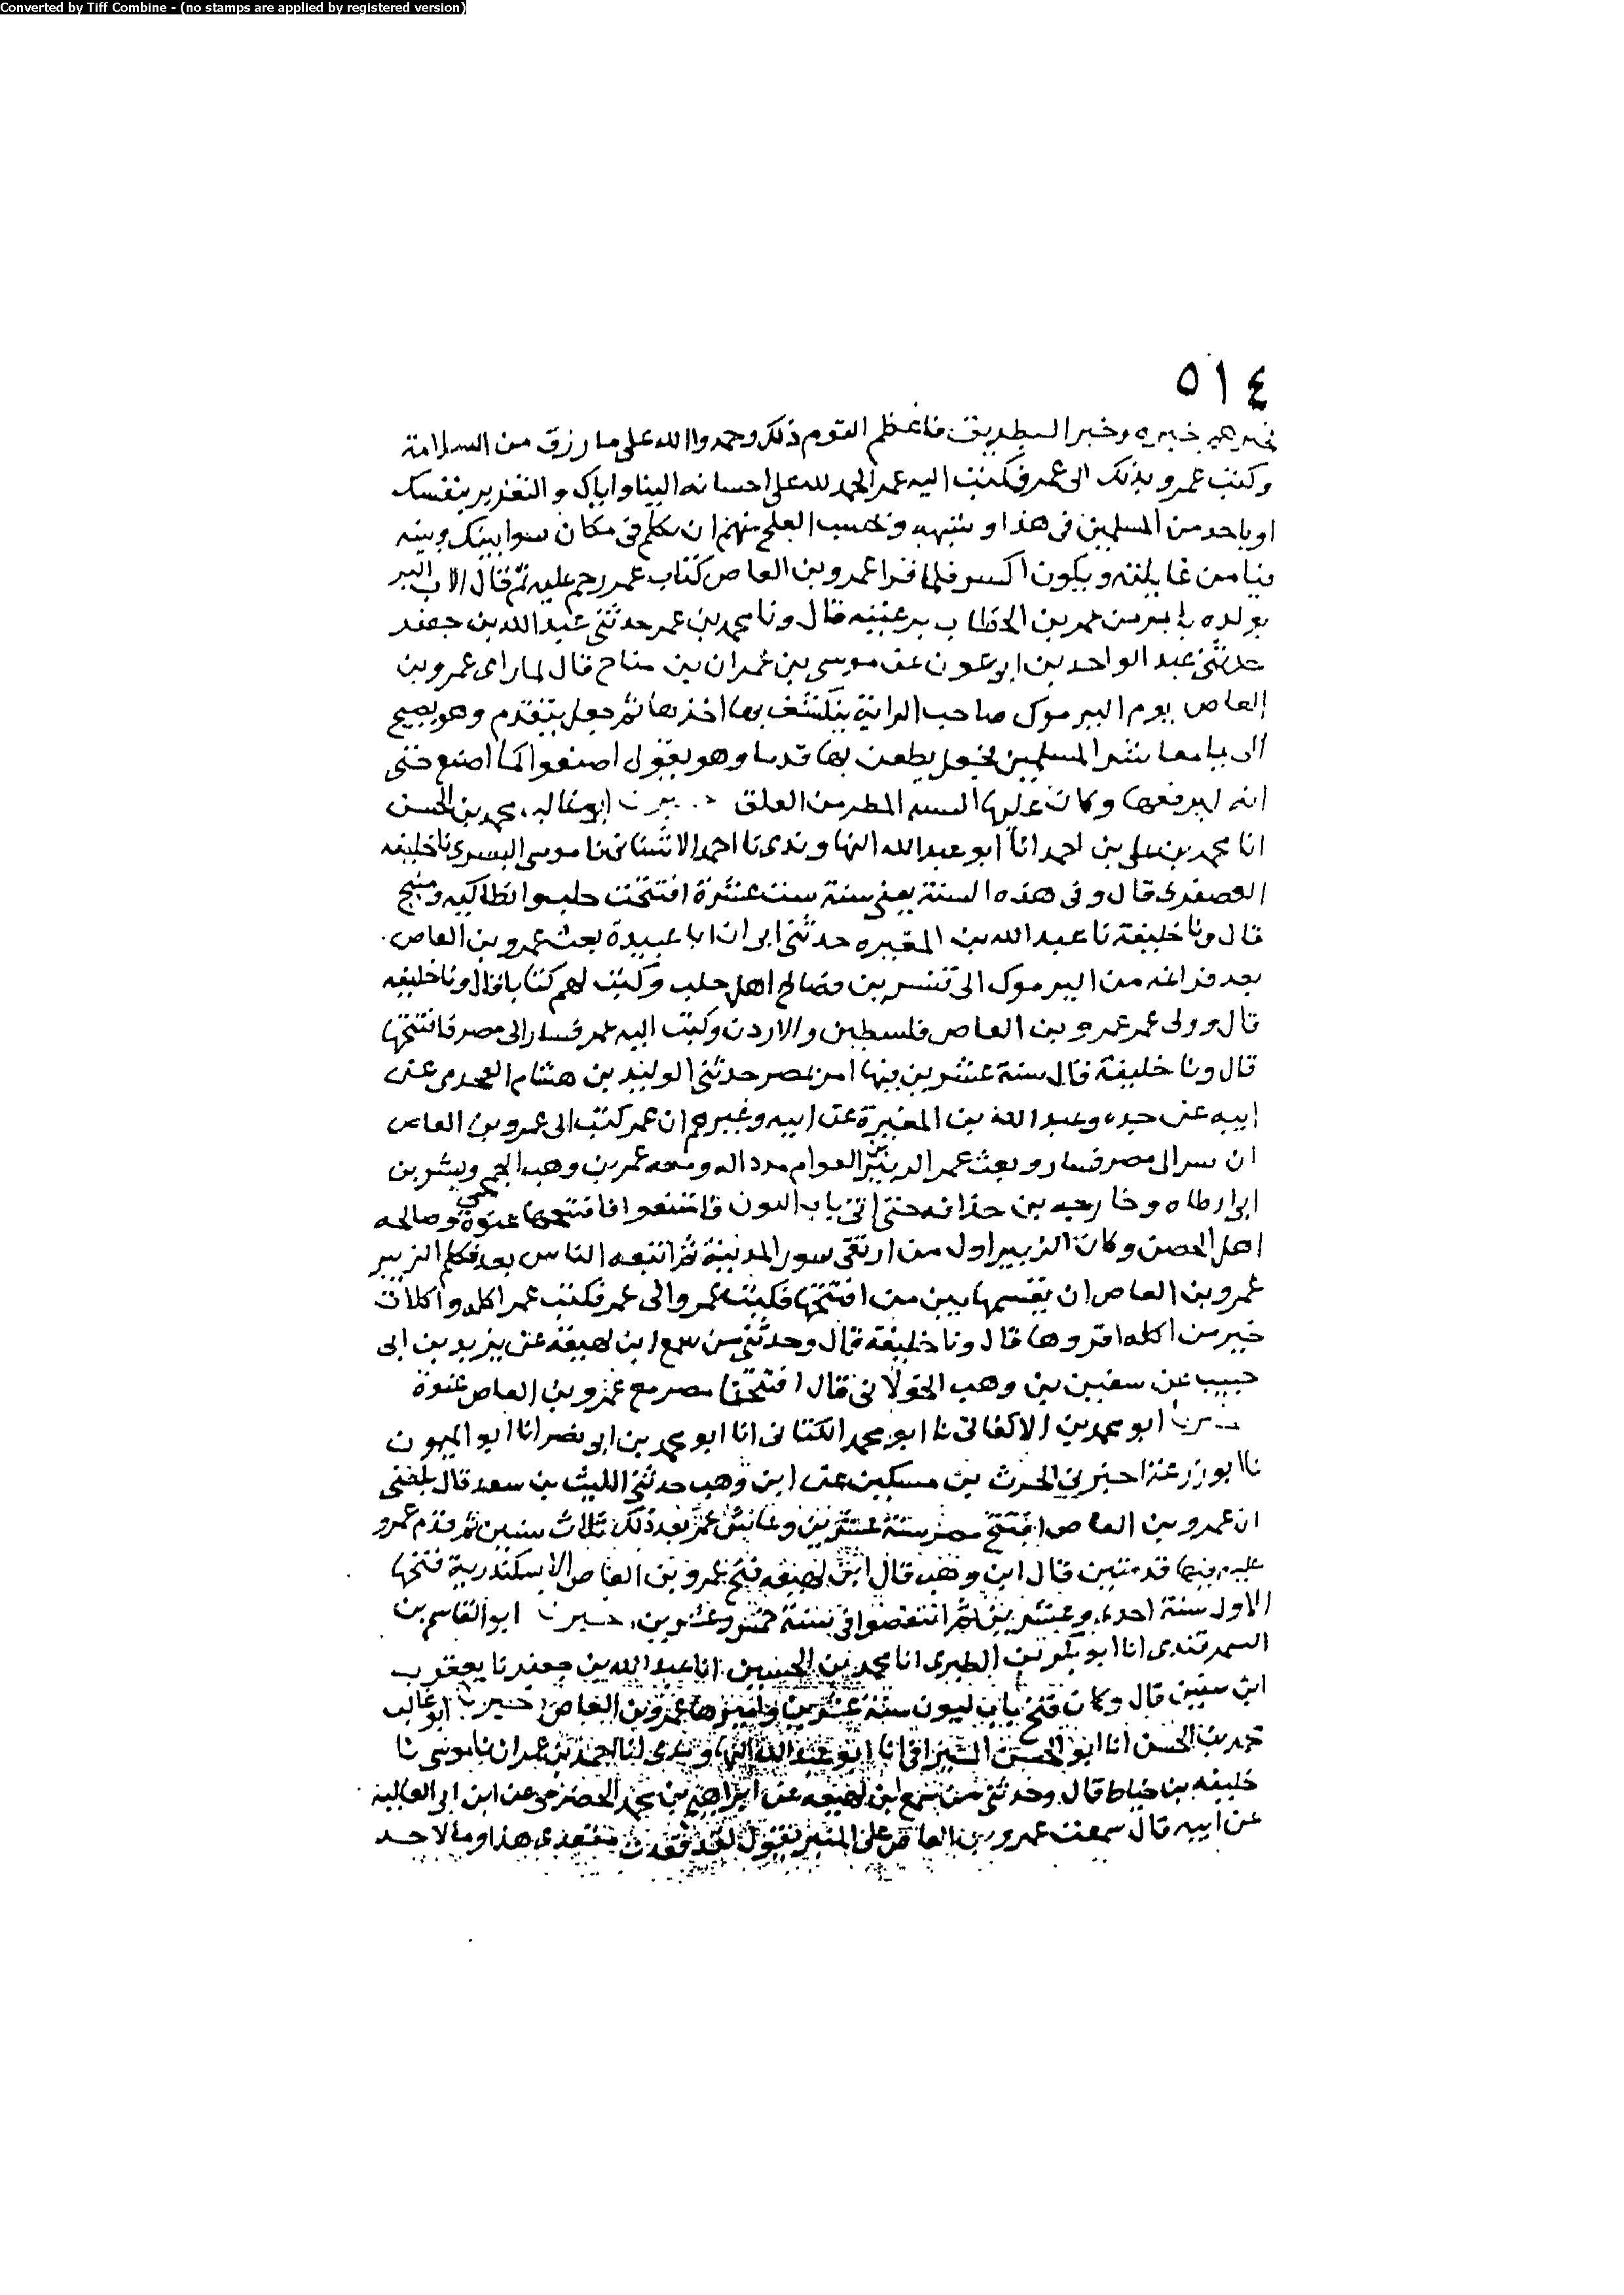 Converted by Tiff Combine - (no stamps are applied by registered version)
٥١٤
فخبرهم خبره وخبر البطريق فاعظم القوم ذلك وحمدوا الله على ما رزق من السلامة
وكتب عمرو بذلك الى عمر فكتب اليه عمر الحمد لله على احسانه الينا واياك والتغرير بنفسك
او باحد من المسلمين فى هذا وشبهه وبحسب العلج منهم ان يكلم فى مكان سوا بينك وبينه
فيامن غايلته ويكون اكسر فلما قرا عمرو بن العاص كتاب عمر رحم عليه ثم قال الاب البر
بولده بابر من عمر بن الخطاب برعيته قال ونا محمد بن عمر حدثنى عبد الله بن جعفر
حدثنى عبد الواحد بن ابى عون عن موسى بن عمران بن مناح قال لما راى عمرو بن
العاص يوم اليرموك صاحب الراية ينكشف بها اخذها ثم جعل يتقدم وهو يصيح
الى يا معاشر المسلمين فجعل يطعن بها قدما وهو يقول اصنعوا كما اصنع حتى
انه ليرفعها وكان عليها المطر من العلق ابو غالب محمد بن الحسن
انا محمد بن على بن احمد انا ابو عبد الله النهاوندى نا احمد الاشنانى نا موسى التسترى نا خليفه
العصفرى قال وفى هذه السنة يعنى سنة ست عشرة افتتحت حلب وانطاكيه ومنبج
قال ونا خليفة نا عبد الله بن المغيره حدثنى ابى ان ابا عبيدة بعث عمرو بن العاص
بعد فراغه من اليرموك الى قنسرين فصالح اهل حلب وكتب لهم كتابا قال ونا خليفه
قال وولى عمر عمرو بن العاص فلسطين والاردن وكتب اليه عمر فسار الى مصر فافتتحها
قال ونا خليفة قال سنة عشرين فيها امر مصر حدثنى الوليد بن هشام القحذمى عن
ابيه عن جده وعبد الله بن المغيرة عن ابيه وغيرهم ان عمر كتب الى عمرو بن العاص
ان سر الى مصر فسار وبعث عمر الزبير بن العوام مددا له ومعه عمير بن وهب الجمحى وبشر بن
ابى ارطاه وخارجه بن حذافه حتى اتى باب اليون فامتنعوا فافتتحها عنوة وصالحه
اهل الحصن وكان الزبير اول من ارتقى سور المدينة ثم اتبعه الناس بعد فكلم الزبير
عمرو بن العاص ان يقسمها بين من افتتحها فكتب عمرو الى عمر فكتب عمر اكله واكلات
خير من اكله اقروها قال ونا خليفة قال وحدثنى من سمع ابن لهيعة عن يزيد بن ابى
حبيب عن سفين بن وهب الخولانى قال افتتحنا مصر مع عمرو بن العاص عنوة
ابو محمد بن الاكفانى نا ابو محمد الكتانى انا ابو محمد بن ابى نصر انا ابو الميمون
نا ابو زرعة اخبرنى الحرث بن مسكين عن ابن وهب حدثنى الليث بن سعد قال بلغنى
ان عمرو بن العاص افتتح مصر سنة عشرين وعاش عمر بعد ذلك ثلاث سنين ثم قدم عمرو
عليه فيها قدمتين قال ابن وهب قال ابن لهيعه فتح عمرو بن العاص الاسكندرية فتحها
الاول سنة احدى وعشرين ثم انتقضوا فى سنة خمس وعشرين ابو القاسم بن
السمرقندى انا ابو بكر بن الطبرى انا محمد بن الحسين انا عبد الله بن جعفر نا يعقوب
ابن سفين قال وكان فتح باب ليون سنة عشرين واميرها عمرو بن العاص ابو غالب
محمد بن الحسن انا ابو الحسن السيرافى انا ابو عبد الله النهاوندى نا احمد بن عمران نا موسى نا
خليفه بن خياط قال وحدثنى من سمع ابن لهيعه عن ابراهيم بن محمد الحضرمى عن ابن ابى العاليه
عن ابيه قال سمعت عمرو بن العاص على المنبر يقول لقد قعدت مقعدى هذا وما لاحد